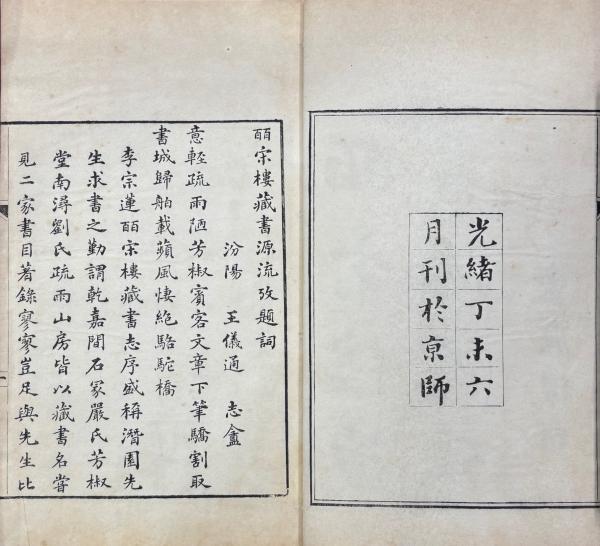 光緒丁未六
月刊於京師
皕宋樓藏書源流攷題詞
汾陽 王儀通 志盦
意輕疏雨陋芳椒賓客文章下筆驕割取
書城歸舶載蘋風悽絕駱駝橋
李宗蓮皕宋樓藏書志序盛稱潛園先
生求書之勤謂乾嘉間石冢嚴氏芳椒
堂南潯劉氏疏雨山房皆以藏書名嘗
見二家書目著錄寥寥豈足與先生比